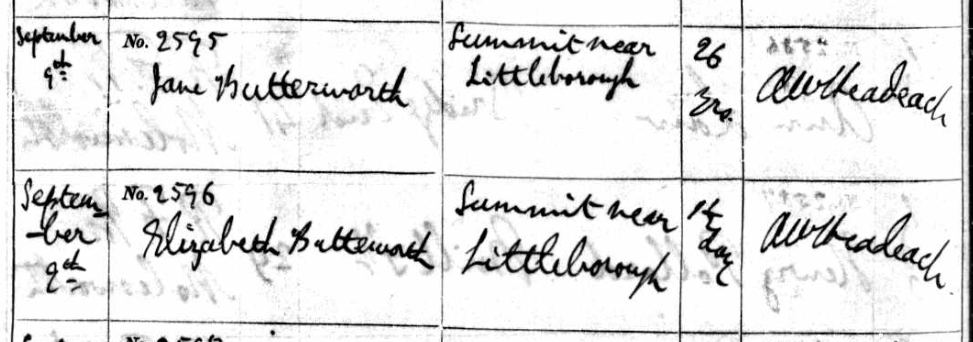 September
9th
No. 2595
Jane Butterworth
Summit near
Littleborough
26
Yrs.
AWHeadeach
Septem
-ber
9th
No. 2596
Elizabeth Butterworth
Summit near
Littleborough
day
AWHeadeach.